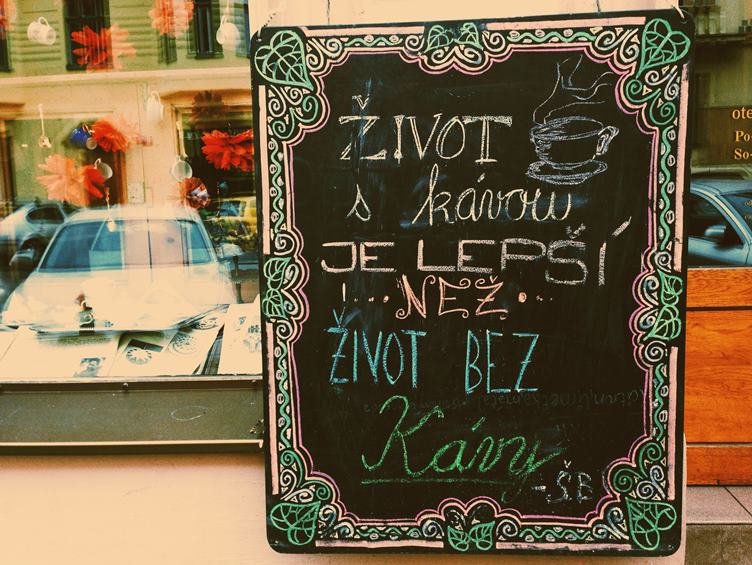 ŽIVOT
s kávou
JE LEPŠÍ
!... NEŽ ...
ŽIVOT BEZ
Kávy
- Š.B
ote
Po
So